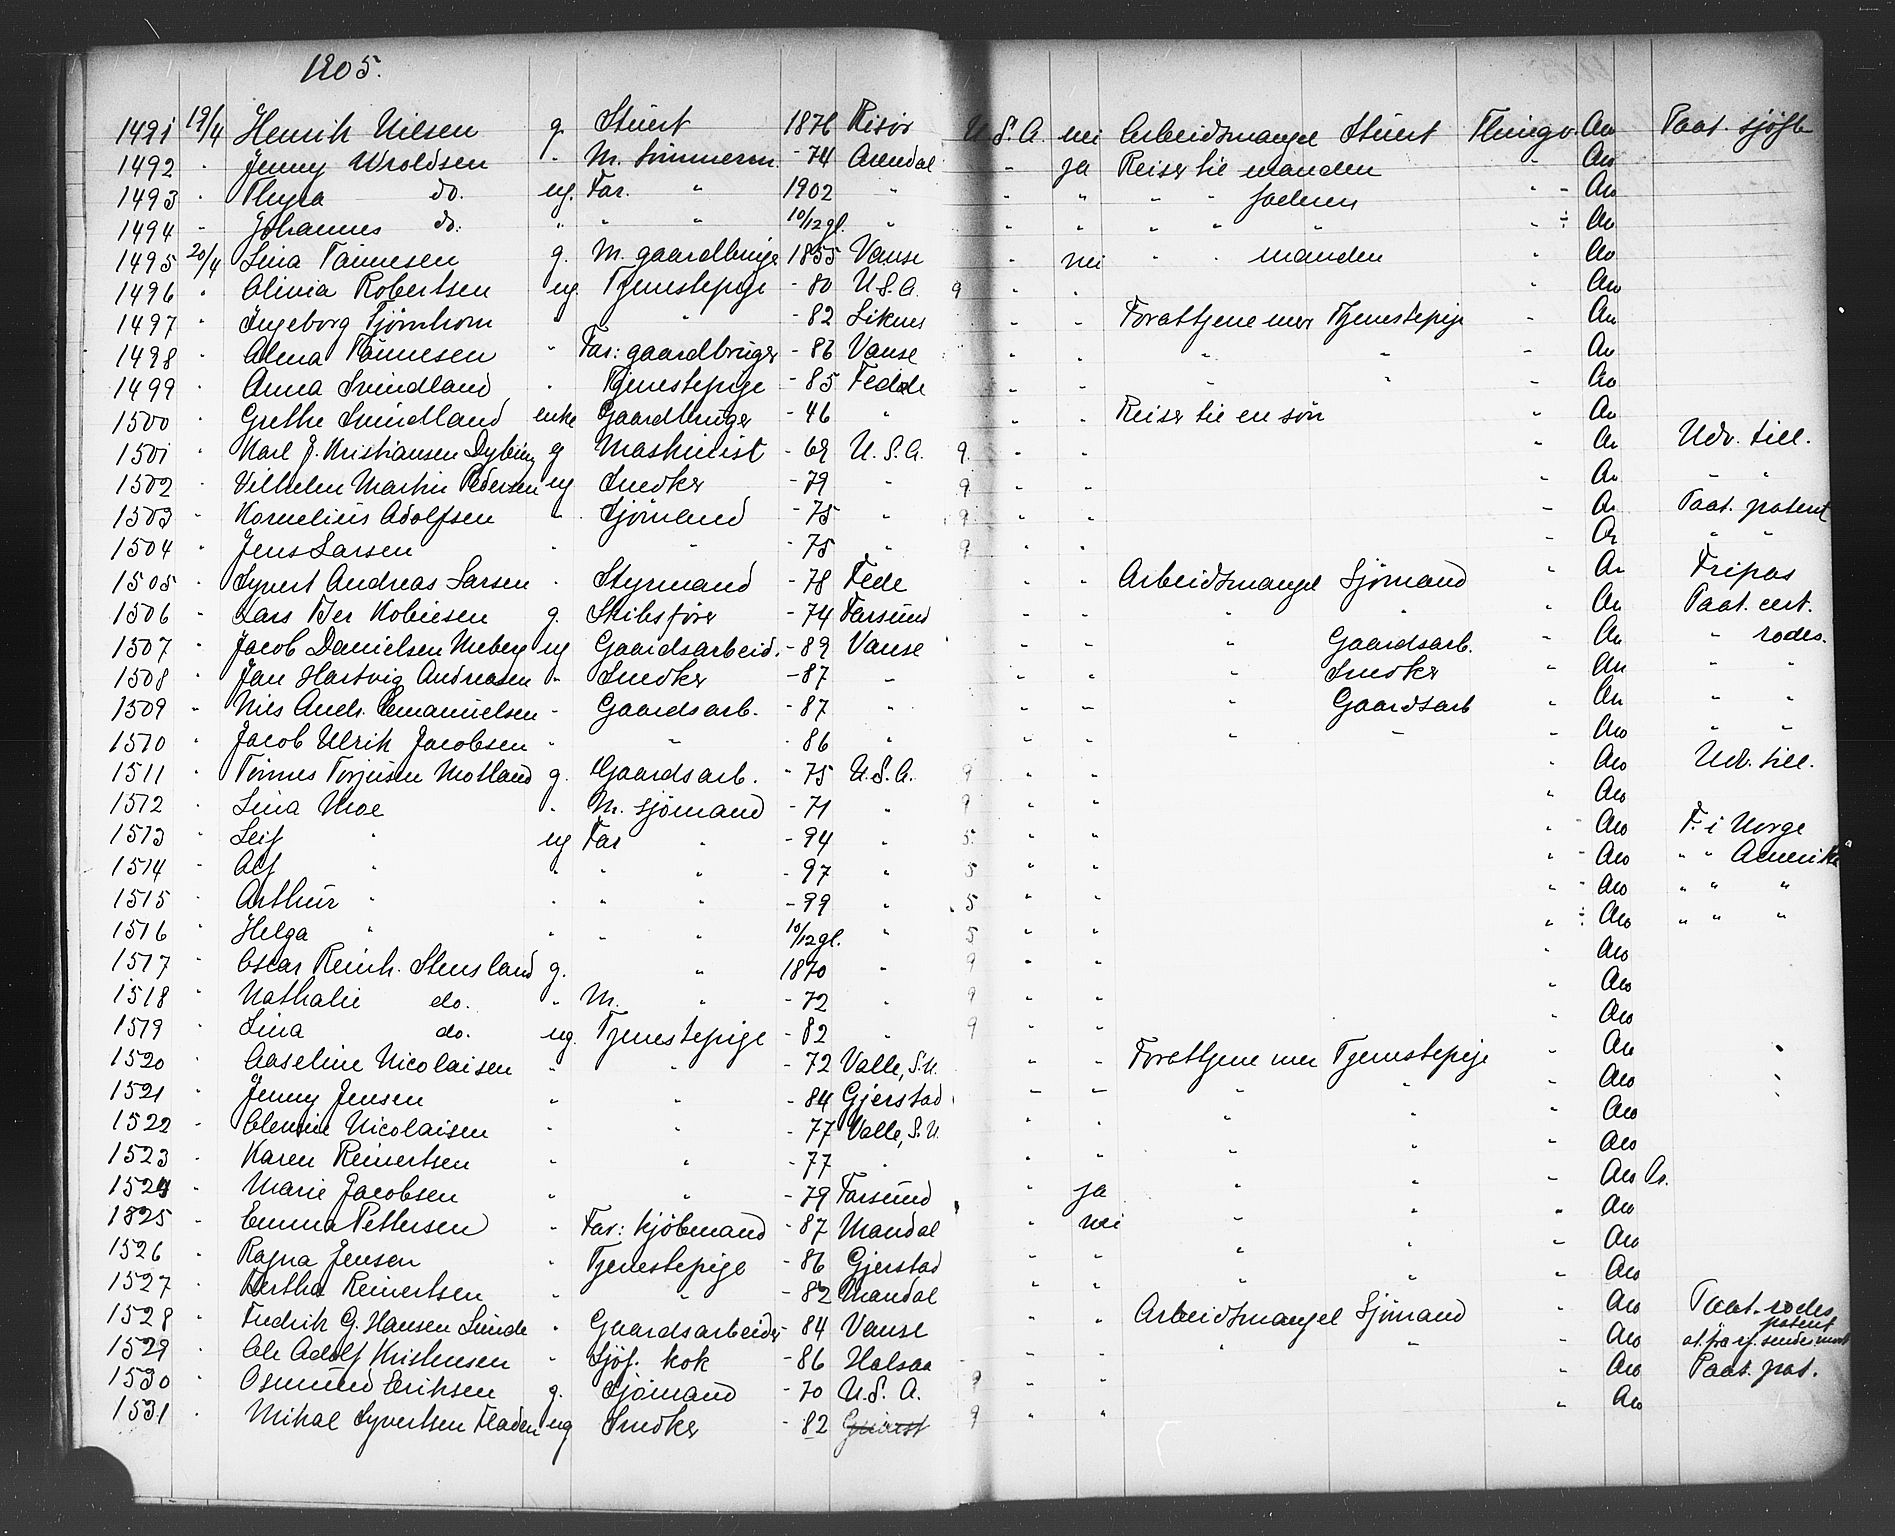 1905.
1491 19/4 Henrik Nilsen g. Stuert 1876 Risör U.S.A. nei Arbeidsmangel Stuert Thingv. Ao Paat. sjöfb
1492 " Jenny Uroldsen " M. tömmerm. -74 Arendal " ja Reiser til manden " Ao
1493 " Thyra do. ug. Far. " 1902 " " " " " faderen " - Ao
1494 " Johannes do. " " " 10/12 gl. " " " " " " " ÷ Ao
1495 20/4 Lina Tönnesen g. M. gaardbruger 1855 Vanse " nei " " manden Ao
1496 " Olivia Robertsen ug. Tjenestepige -80 U.S.A. 9 " " " Ao
1497 " Ingeborg Tjörnhom " " -82 Liknes " " Forattjene mer Tjenestepige " Ao
1498 " Alma Tönnesen " Far: gaardbruger -86 Vanse " " " " " Ao
1499 " Anna Svindland " Tjenestepige -85 Fedde " " " " " Ao
1500 " Grethe Svindland enke Gaardbruger -46 " " " Reiser til en sön " Ao
1501 " Karl J. Kristiansen Dybing g Maskinist -69 U.S.A. 9 " " " Ao Udv. till.
1502 " Vilhelm Martin Pedersen ug Snedker -79 " 9 " " " Ao " "
1503 " Kornelius Adolfsen " Sjömand -75 " 9 " " " Ao Paat. patent
1504 " Jens Larsen " " -75 " 9 " " " Ao " "
1505 " Syvert Andreas Larsen " Styrmand -78 Fede " " Arbeidsmangel Sjömand " Ao Fripas
1506 " Lars Ber Tobiesen g. Skibsförer -74 Farsund " " " " " Ao Paat. cert.
1507 " Jacob Danielsen ug Gaardsarbeid. -89 Vanse " " " Gaardsarb. " Ao " rodes.
1508 " Jan Hartvig Andreasen " Snedker -87 " " " " Snedker " Ao " "
1509 " Nils Andr. Emanuelsen " Gaardsarb. -87 " " " " Gaardsarb " Ao " "
1510 " Jacob Ulrik Jacobsen " " -86 " " " " " " Ao " "
1511 " Tönnes Torjusen Motland g. Gaardsarb. -75 U.S.A. 9 " " Ao Udv. till.
1512 " Lina Moe " M. sjömand -71 " 9 " " " Ao
1513 " Leif " ug Far " -94 " 5 " " " - Ao F. i Norge
1514 " Alf " " " " -97 " 5 " " " - Ao " " Amerika
1515 " Arthur " " " " -99 " 5 " " " - Ao " " "
1516 " Helga " " " " 10/12 gl. " 5 " " " ÷ Ao " " "
1517 " Oscar Reinh. Stensland g. " 1870 " 9 " " " Ao
1518 " Nathalie do. " M. " -72 " 9 " " " Ao
1519 " Lina do. ug. Tjenestepige -82 " 9 " " " Ao
1520 " Aaseline Nicolaisen " " -72 Valle, S.U. " " Forattjene mer Tjenestepige " Ao
1521 " Jenny Jensen " " -84 Gjerstad " " " " " Ao
1522 " Olevine Nicolaisen " " -77 Valle, S.U. " " " " " Ao
1523 " Karen Reinertsen " " -77 " " " " " " Ao
1524 " Marie Jacobsen " " -79 Farsund " ja " " " Ao
1825 " Emma Pettersen " Far: kjöbmand -87 Mandal " nei " " " Ao
1526 " Ragna Jensen " Tjenestepige -86 Gjerstad " " " " " Ao
1527 " Bertha Reinertsen " " -82 Mandal " " " " " Ao
1528 " Fredrik G. Hansen Lunde " Gaardsarbeider -84 Vanse " " Arbeidsmangel Sjömand " Ao Paat. rodes patent
1529 " Ole Adolf Kristensen " Sjöf. kok -86 Halsaa " " " " Ao
1530 " Osmund Eriksen g. Sjömand -70 U.S.A. 9 " " Ao Paat. pat.
1531 " Mikal Syvertsen ug Snedker -82 9 " " " Ao